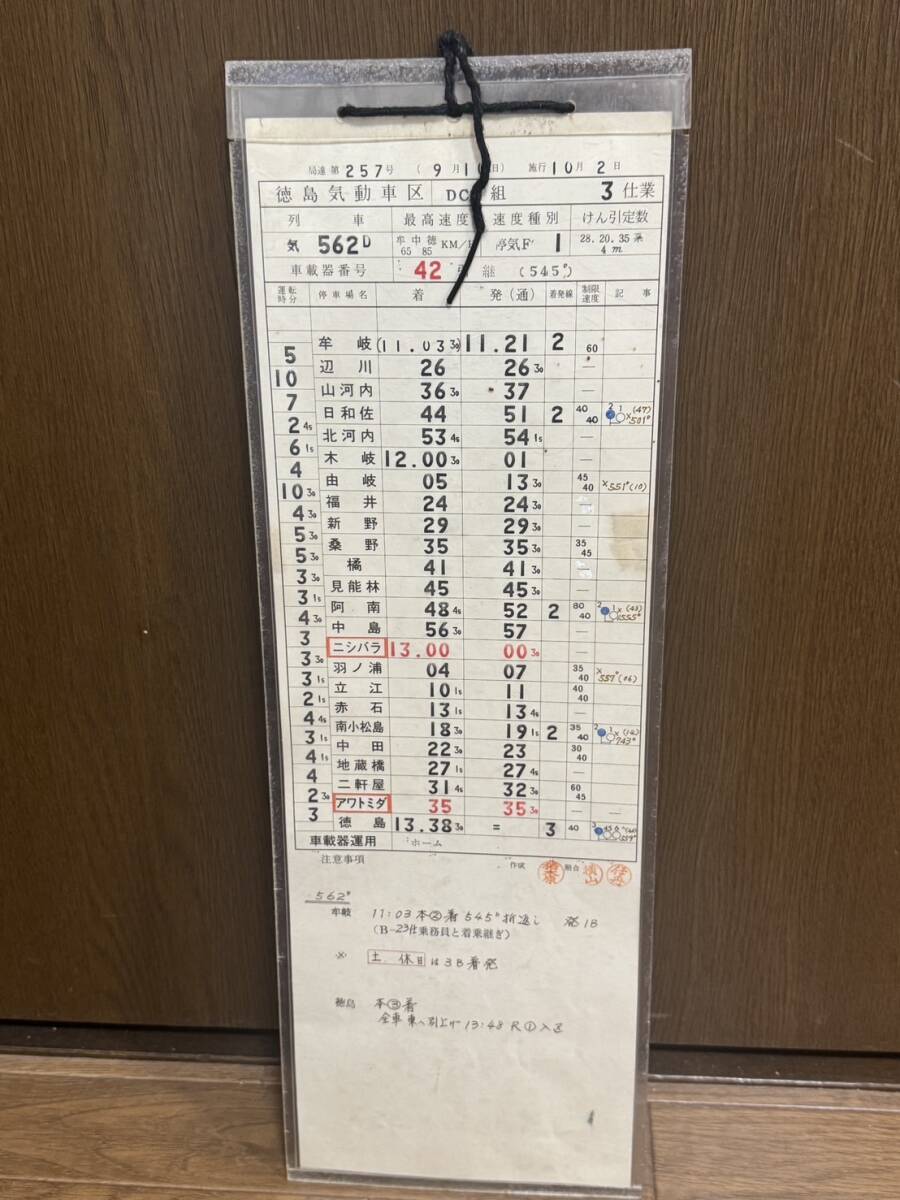 局達第257号 (9月10日) 施行10月2日
徳島気動車区 DC 組 3仕業
列車 最高速度 速度種別 けん引定数
気 562D 牟中徳 65 85 KM/H 停気F' 1 28.20.35系 4m
車載器番号 42 引継 (545D)
運転時分 停車場名 着 発(通) 着発線 制限速度 記事
牟岐 (11.03 30) 11.21 2 60
5 辺川 26 26 30 —
10 山河内 36 30 37 —
7 日和佐 44 51 2 40 40 2 1 ×(47) 501D
2 45 北河内 53 45 54 15 —
6 15 木岐 12.00 30 01 —
4 由岐 05 13 30 45 40 ×551D(10)
10 30 福井 24 24 30 —
4 30 新野 29 29 30 —
5 30 桑野 35 35 30 35 45
5 30 橘 41 41 30 —
3 30 見能林 45 45 30 —
3 15 阿南 48 45 52 2 80 40 2 1 ×(43) 555D
4 30 中島 56 30 57 —
3 ニシバラ 13.00 00 30 —
3 30 羽ノ浦 04 07 35 40 × 557D(06)
3 15 立江 10 15 11 40 40
2 15 赤石 13 15 13 45 —
4 45 南小松島 18 30 19 15 2 35 40 2 1 × 743D
3 15 中田 22 30 23 30 40
4 15 地蔵橋 27 15 27 45 —
4 二軒屋 31 45 32 30 60 45
2 30 アワトミダ 35 35 30 — —
3 徳島 13.38 30 = 3 40
車載器運用 ホーム
注意事項 作成 照合
562D
牟岐 11:03 本②着 545D折返し 発1B
(B-23仕乗務員と着乗継ぎ)
※ 土、休日は3B着発
徳島 本③着
全車東へ引上げ 13:48 R①入区